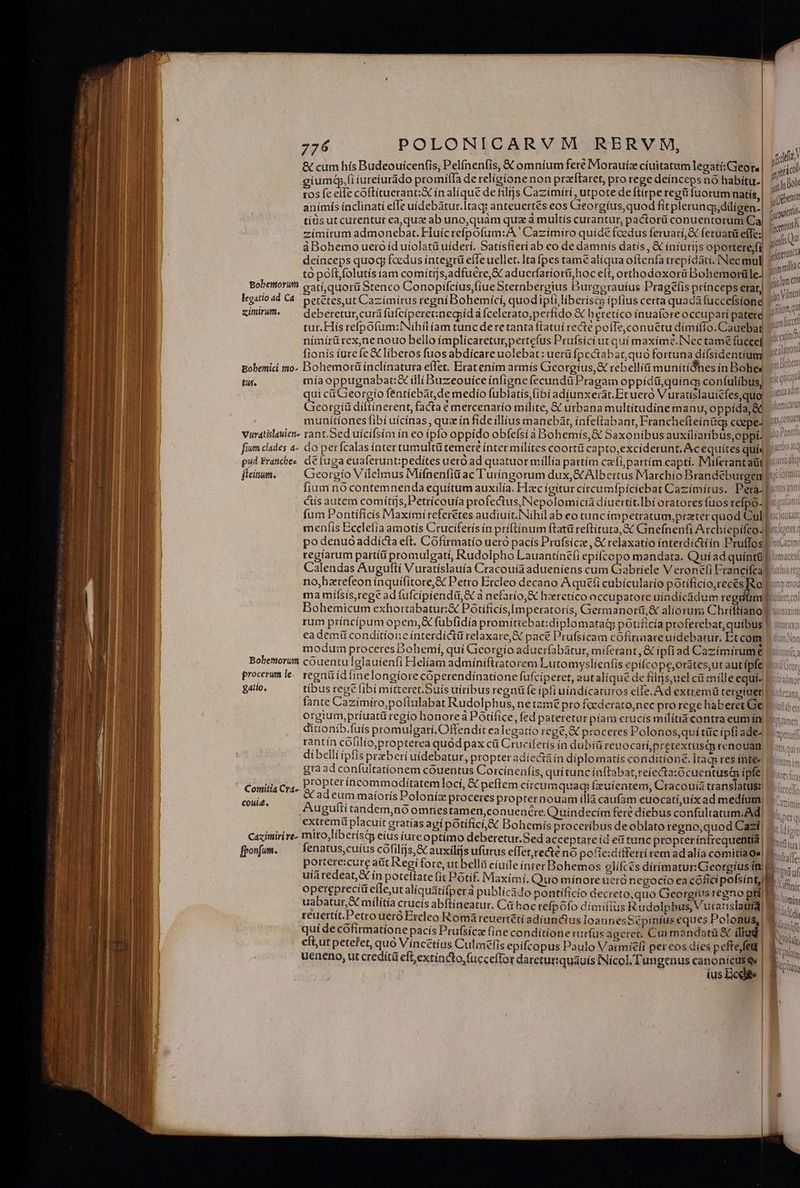 776 POLONICARVM RERVM,
& cum hís Budeouicenſis, Pelſnenſis, & omnium ferè Morauiæ ciuitatum legati: Geor-
giumq́;, ſi iureiurãdo promiſſa de religione non præſtaret, pro rege deinceps nõ habitu-
ros ſe eſſe cõſtituerant: & in aliquẽ de filijs Cazimiri, utpote de ſtirpe regũ ſuorum natis,
animis inclinati eſſe uidebãtur. Itaq; anteuertẽs eos Georgius, quod fit plerunq;, diligen-
tiùs ut curentur ea, quæ ab uno, quàm quæ à multis curantur, pactorũ conuentorum Ca-
zimirum admonebat. Huic reſpõſum: A Cazimiro quidẽ fœdus ſeruari, & ſeruatũ eſſe:
à Bohemo uerò id uiolatũ uideri. Satisfieri ab eo de damnis datis, & iniurijs oportere, ſi
deinceps quoq; fœdus integrũ eſſe uellet. Ita ſpes tamẽ aliqua oſtenſa trepidãti. Nec mul
tò pòſt, ſolutis iam comitijs, adfuêre, & aduerſariorũ, hoc eſt, orthodoxorũ Bohemorũ le-
Bohemorum gati, quorũ Stenco Conopiſcius, ſiue Sternbergius Burggrauius Pragẽſis princeps erat,
legatio ad Ca petẽtes, ut Cazimirus regni Bohemici, quod ipſi, liberisq; ipſius certa quadã ſucceſsione
zimirum. deberetur, curã ſuſciperet: neq; id à ſcelerato, perfido & hæretico inuaſore occupari patere
tur. His reſpõſum: Nihil iam tunc de re tanta ſtatui rectè poſſe, conuẽtu dimiſſo. Cauebat
nimirũ rex, ne nouo bello implicaretur, pertęſus Pruſsici ut qui maximè. Nec tamẽ ſucceſ
ſionis iure ſe & liberos ſuos abdicare uolebat: uerũ ſpectabat, quò fortuna diſsidentium
Bohemici mo- Bohemorũ inclinatura eſſet. Erat enim armis Georgius, & rebelliũ munitiões in Bohe-
tus. mia oppugnabat: & illi Buzeouice inſigne ſecundũ Pragam oppidũ, quinq; conſulibus,
qui cũ Georgio ſentiebãt, de medio ſublatis, ſibi adiunxerãt. Et uerò Vuratislauiẽſes, quo
Georgiũ diſtinerent, facta è mercenario milite, & urbana multitudine manu, oppida, &
munitiones ſibi uicinas, quæ in fide illius manebãt, infeſtabant, Francheſteinũq; cœpe-
Vuratislauien- rant. Sed uiciſsim in eo ipſo oppido obſeſsi à Bohemis, & Saxonibus auxiliaribus, oppi-
ſium clades a- do per ſcalas inter tumultũ temerè inter milites coortũ capto, exciderunt. Ac equites qui-
pud Franche- dẽ fuga euaſerunt: pedites uerò ad quatuor millia partim cæſi, partim capti. Miſerant aũt
ſteinum. Georgio Vilelmus Miſnenſiũ ac Turingorum dux, & Albertus Marchio Brandẽburgen
ſium nõ contemnenda equitum auxilia. Hæc igitur circumſpiciebat Cazimirus. Pera-
ctis autem comitijs, Petricouia profectus, Nepolomiciã diuertit. Ibi oratores ſuos reſpõ-
ſum Pontificis Maximi referẽtes audiuit. Nihil ab eo tunc impetratum, præter quod Cul
menſis Eccleſia amotis Cruciferis in priſtinum ſtatũ reſtituta, & Gneſnenſi Archiepiſco-
po denuò addicta eſt. Cõfirmatio uerò pacis Pruſsicæ, & relaxatio interdicti in Pruſſos
regiarum partiũ promulgati, Rudolpho Lauantinẽſi epiſcopo mandata. Qui ad quintũ
Calendas Auguſti Vuratislauia Cracouiã adueniens cum Gabriele Veronẽſi Franciſca
no, hæreſeon inquiſitore, & Petro Ercleo decano Aquẽſi cubiculario põtificio, recẽs Ro
ma miſsis, regẽ ad ſuſcipiendũ, & à nefario, & hæretico occupatore uindicãdum regnum
Bohemicum exhortabatur: & Põtificis, Imperatoris, Germanorũ, & aliorum Chriſtiano
rum principum opem, & ſubſidia promittebat: diplomataq; põtificia proferebat, quibus
ea demũ conditione interdictũ relaxare, & pacẽ Pruſsicam cõfirmare uidebatur. Et com
modum proceres Bohemi, qui Georgio aduerſabãtur, miſerant, & ipſi ad Cazimirum è
Bohemorum cõuentu Iglauienſi Heliam adminiſtratorem Lutomyslienſis epiſcope, orãtes, ut aut ipſe
procerum le- regnũ id ſine longiore cõperendinatione ſuſciperet, aut aliquẽ de filijs, uel cũ mille equi-
gatio. tibus regẽ ſibi mitteret. Suis uiribus regnũ ſe ipſi uindicaturos eſſe. Ad extremũ tergiuer
ſante Cazimiro, poſtulabat Rudolphus, ne tamẽ pro fœderato, nec pro rege haberet Ge
orgium, priuatũ regio honore à Põtifice, ſed pateretur piam crucis militiã contra eum in
ditionib. ſuis promulgari. Offendit ea legatio regẽ, & proceres Polonos, qui tũc ipſi ade-
rant in cõſilio, propterea quòd pax cũ Cruciferis in dubiũ reuocari, pretextusq; renouan
di belli ipſis præberi uidebatur, propter adiectã in diplomatis conditionẽ. Itaq; res inte-
gra ad conſultationem cõuentus Corcinenſis, qui tunc inſtabat, reiecta: õcuentusq; ipſe
Comitia Cra- propter incommoditatem loci, & peſtem circumquaq; ſæuientem, Cracouiã translatus:
couiæ. & ad eum maioris Poloniæ proceres propter nouam illã cauſam euocati, uix ad medium
Auguſti tandem, nõ omnes tamen, conuenêre. Quindecim ferè diebus conſultatum. Ad
extremũ placuit gratias agi põtifici, & Bohemis proceribus de oblato regno, quod Cazi
Cazimiri re- miro, liberisq; eius iure optimo deberetur. Sed acceptare id eũ tunc propter infrequentiã
ſponſum. ſenatus, cuius cõſilijs, & auxilijs uſurus eſſet, rectè nõ poſſe: differri rem ad alia comitia o-
portere: curę aũt Regi fore, ut bellũ ciuile inter Bohemos gliſcẽs dirimatur: Georgius in
uiã redeat, & in poteſtate ſit Põtif. Maximi. Quo minore uerò negocio ea cõfici poſsint,
operępreciũ eſſe, ut aliquãtiſper à publicãdo pontificio decreto, quo Georgius regno pri
uabatur, & militia crucis abſtineatur. Cũ hoc reſpõſo dimiſſus Rudolphus, Vuratislauiã
reuertit. Petro uerò Ercleo Romã reuertẽti adiunctus Ioannes Sepinius eques Polonus,
qui de cõfirmatione pacis Pruſsicæ ſine conditione rurſus ageret. Cui mandatũ & illud
eſt, ut peteret, quò Vincẽtius Culmẽſis epiſcopus Paulo Varmiẽſi per eos dies peſte, ſeu
ueneno, ut creditũ eſt, extincto, ſucceſſor daretur: quãuis Nicol. Tungenus canonicus e-
ius Eccle-